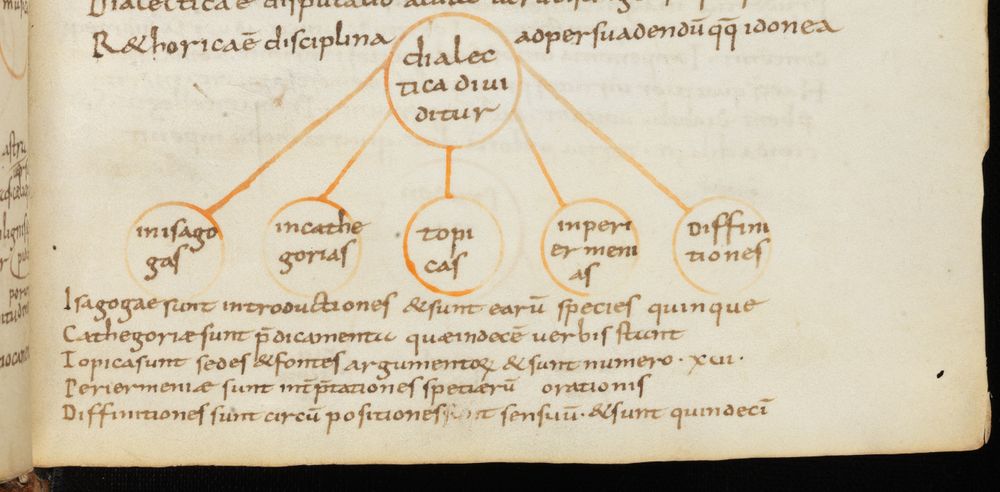 Dialectica ē disputatio
R&horica ē disciplina ad persuadendū q̄q̄ idonea
dialec
tica divi
ditur
in isago
gas
in cathe
gorias
topi
cas
in peri
ermeni
as
Diffini
tiones
Isagogae sunt introductiones & sunt earū species quinque
Cathegoriæ sunt p̄dicamenta quæ in decē verbis stunt
Topica sunt sedes & fontes argumentoꝝ & sunt numero · xvii ·
Periermeniæ sunt int̄p̄tationes speciærū orationis
Diffinitiones sunt circū positiones sensuū · & sunt quindecī